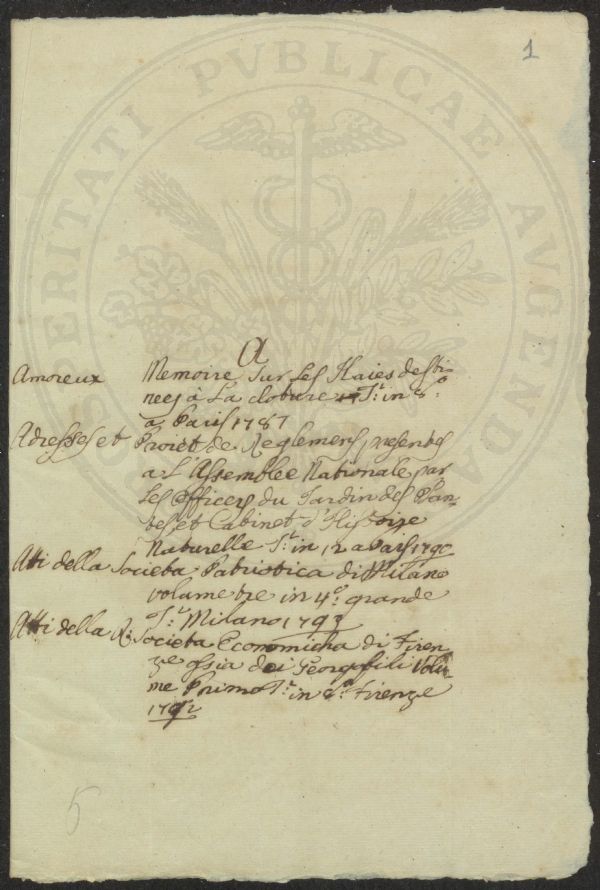 1
PROSPERITATI PVBLICAE AVGENDAE
A
Amoreux Memoire sur Les Haies desti
neés à La cloture T.º in 8.º
a Paris 1787
Adresses et Proiet de Reglemens presentes
a L'Assemblee Nationale par
Les Officers du Jardin des Plan-
tes et Cabinet d'Histoire
Naturelle T.º in 12 a Paris 1790
Atti della Societa Patriotica di Milano
volume tre in 4.º grande
T.º Milano 1793
Atti della R. Societa Economicha di Firen
ze ossia dei Georgofili Volu-
me Primo T.º in 8.º Firenze
1792
5